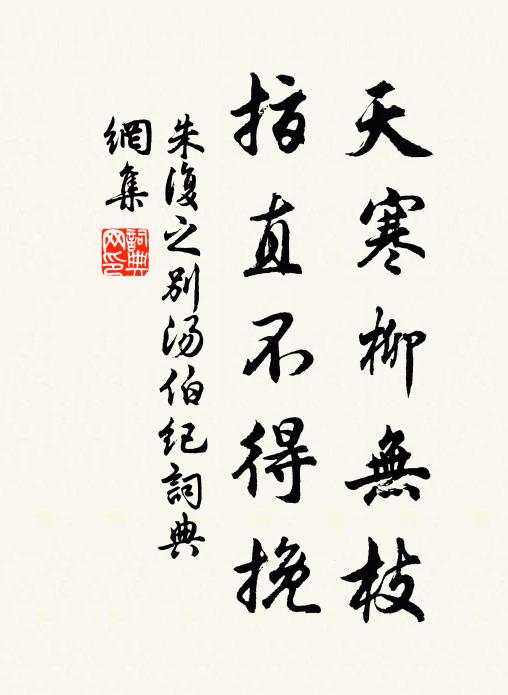 天寒柳無枝
指直不得挽
朱復之別湯伯紀詞典
網集
詞典網印